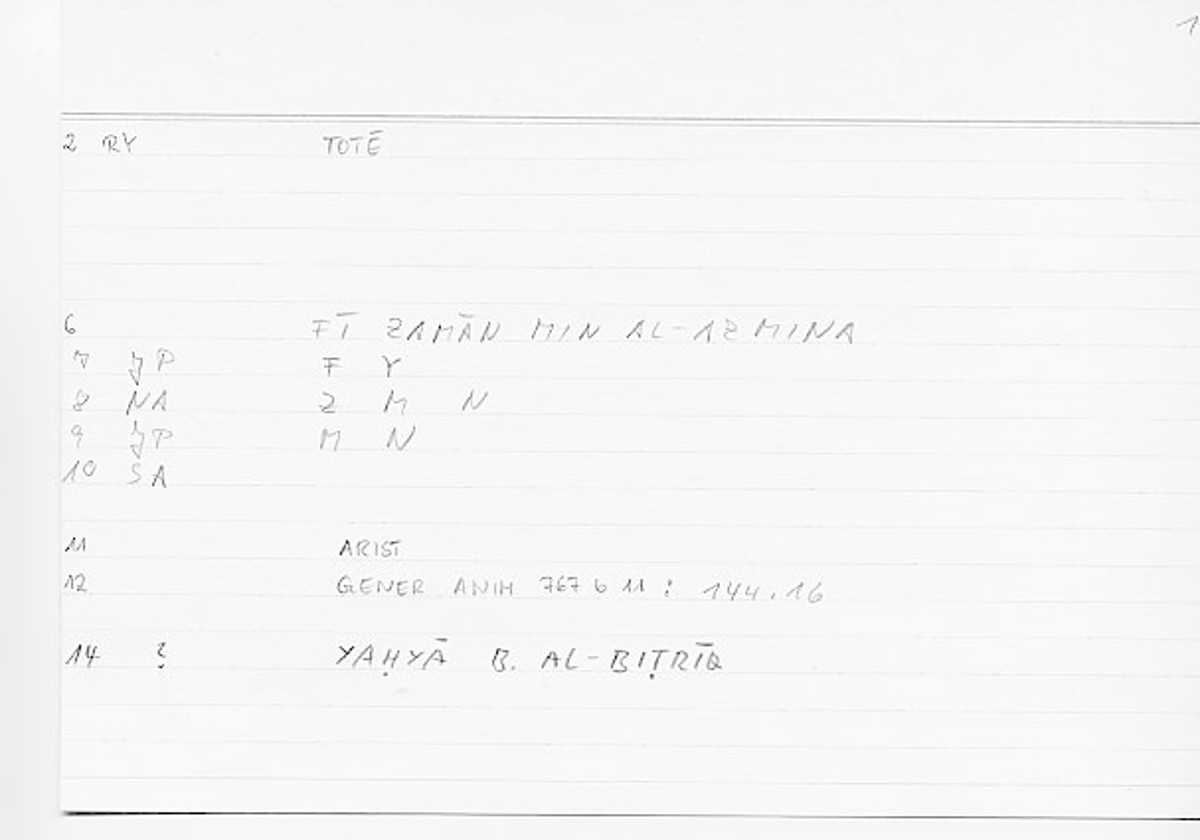 1
2 RY TOTĒ
6 FĪ ZAMĀN MIN AL-AZMINA
7 JP F Y
8 NA Z M N
9 JP M N
10 SA
11 ARIST
12 GENER ANIM 767 b 11 : 144.16
14 ? YAḤYĀ B. AL-BIṬRĪQ